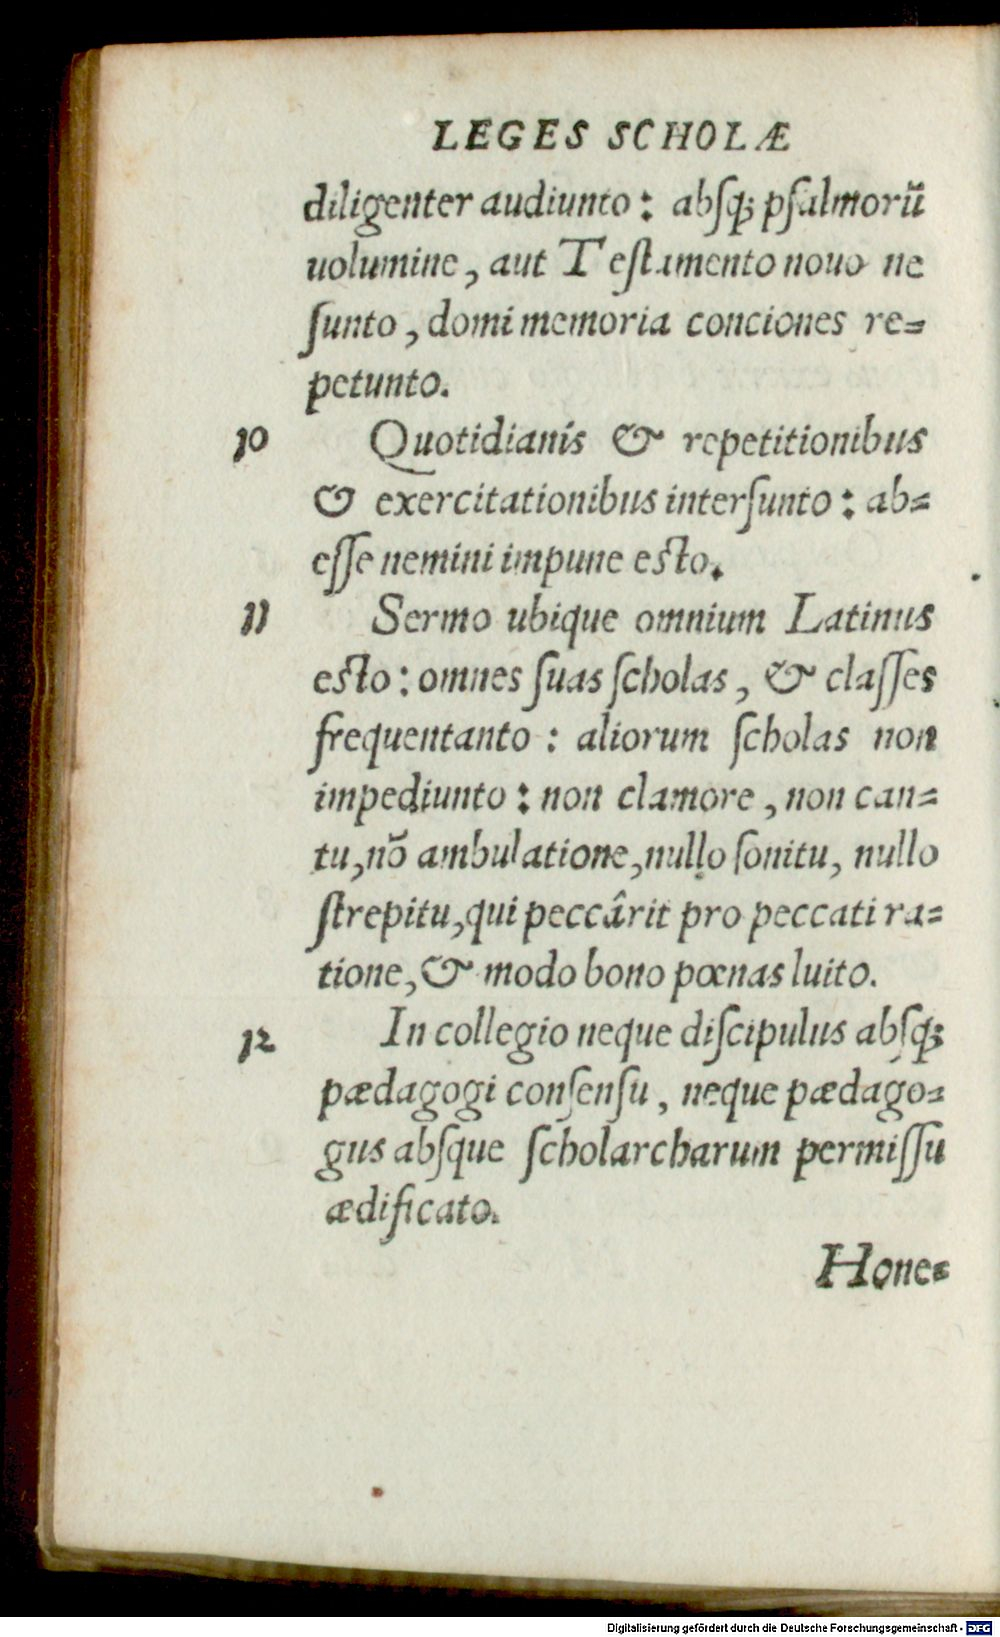 LEGES SCHOLÆ
diligenter audiunto: absq; psalmorũ
uolumine, aut Testamento nouo ne
sunto, domi memoria conciones re-
petunto.
10 Quotidianis & repetitionibus
& exercitationibus intersunto: ab-
esse nemini impune esto.
11 Sermo ubique omnium Latinus
esto: omnes suas scholas, & classes
frequentanto: aliorum scholas non
impediunto: non clamore, non can-
tu, nõ ambulatione, nullo sonitu, nullo
strepitu, qui peccârit pro peccati ra-
tione, & modo bono pœnas luito.
12 In collegio neque discipulus absq;
pædagogi consensu, neque pædago-
gus absque scholarcharum permissu
ædificato.
Hone-
Digitalisierung gefördert durch die Deutsche Forschungsgemeinschaft - DFG